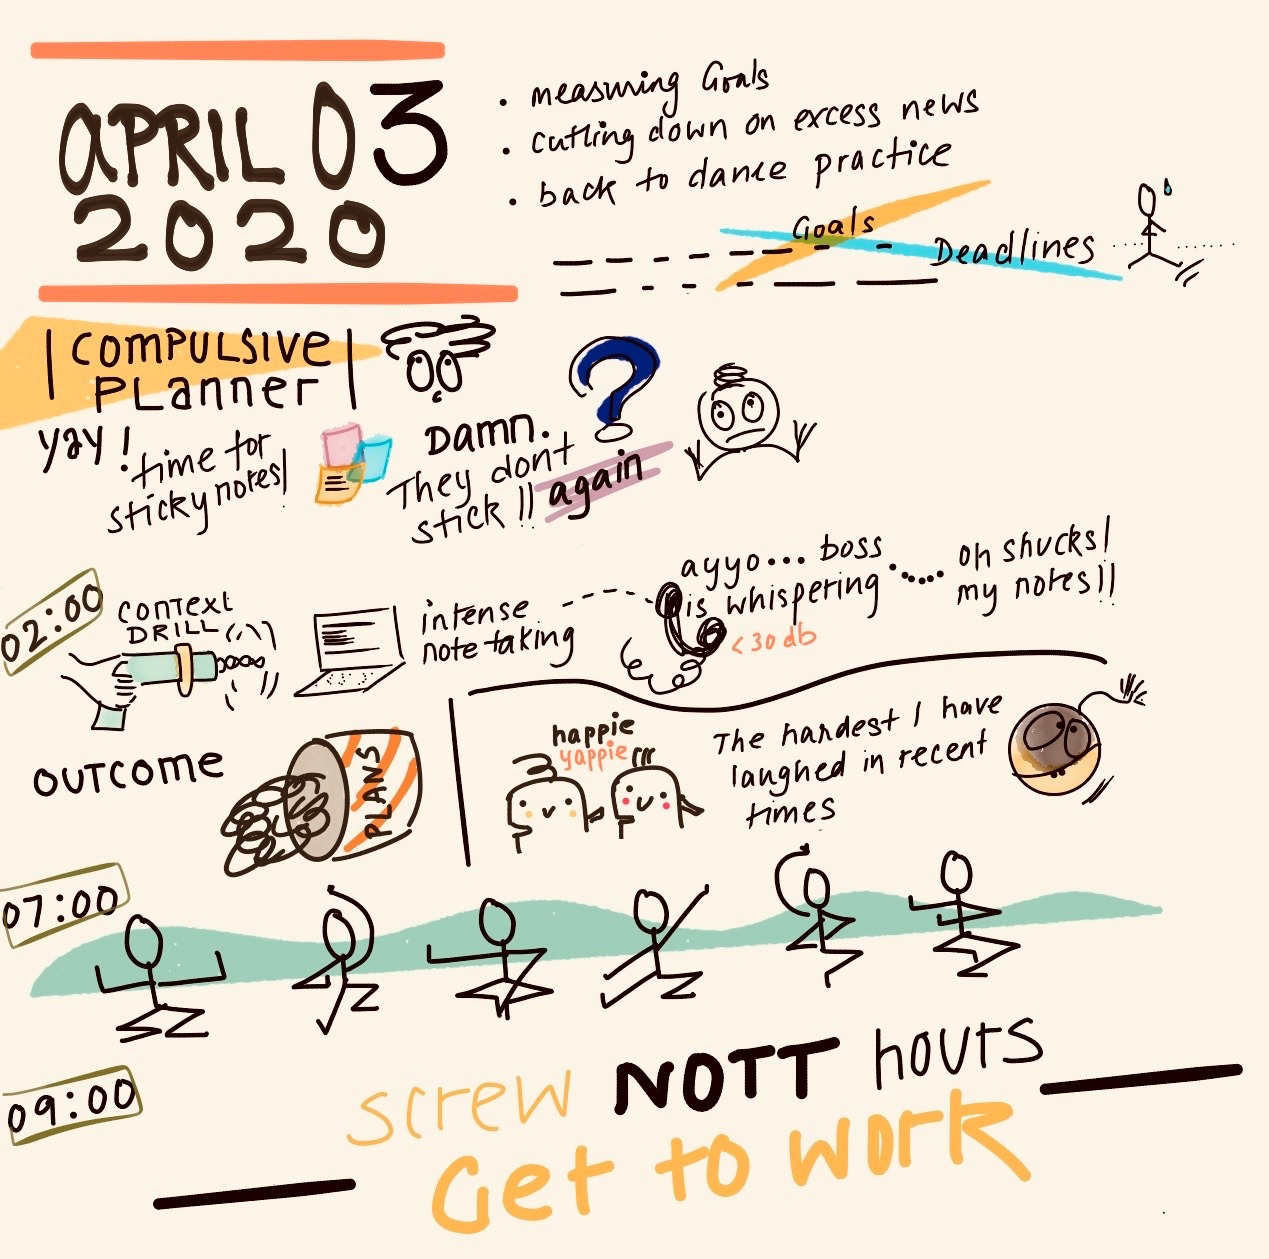 APRIL 03
2020
• measuring Goals
• cutting down on excess news
• back to dance practice
Goals
Deadlines
| COMPULSIVE |
PLanner
?
yay!
time for
sticky notes!
Damn.
They dont
stick !! again
02:00
CONTEXT
DRILL
intense
note taking
ayyo... boss
is whispering
< 30 db
oh shucks!
my notes!!
OUTCOME
PLANS
happie
yappie
The hardest I have
laughed in recent
times
07:00
09:00
screw NOTT hours
Get to work